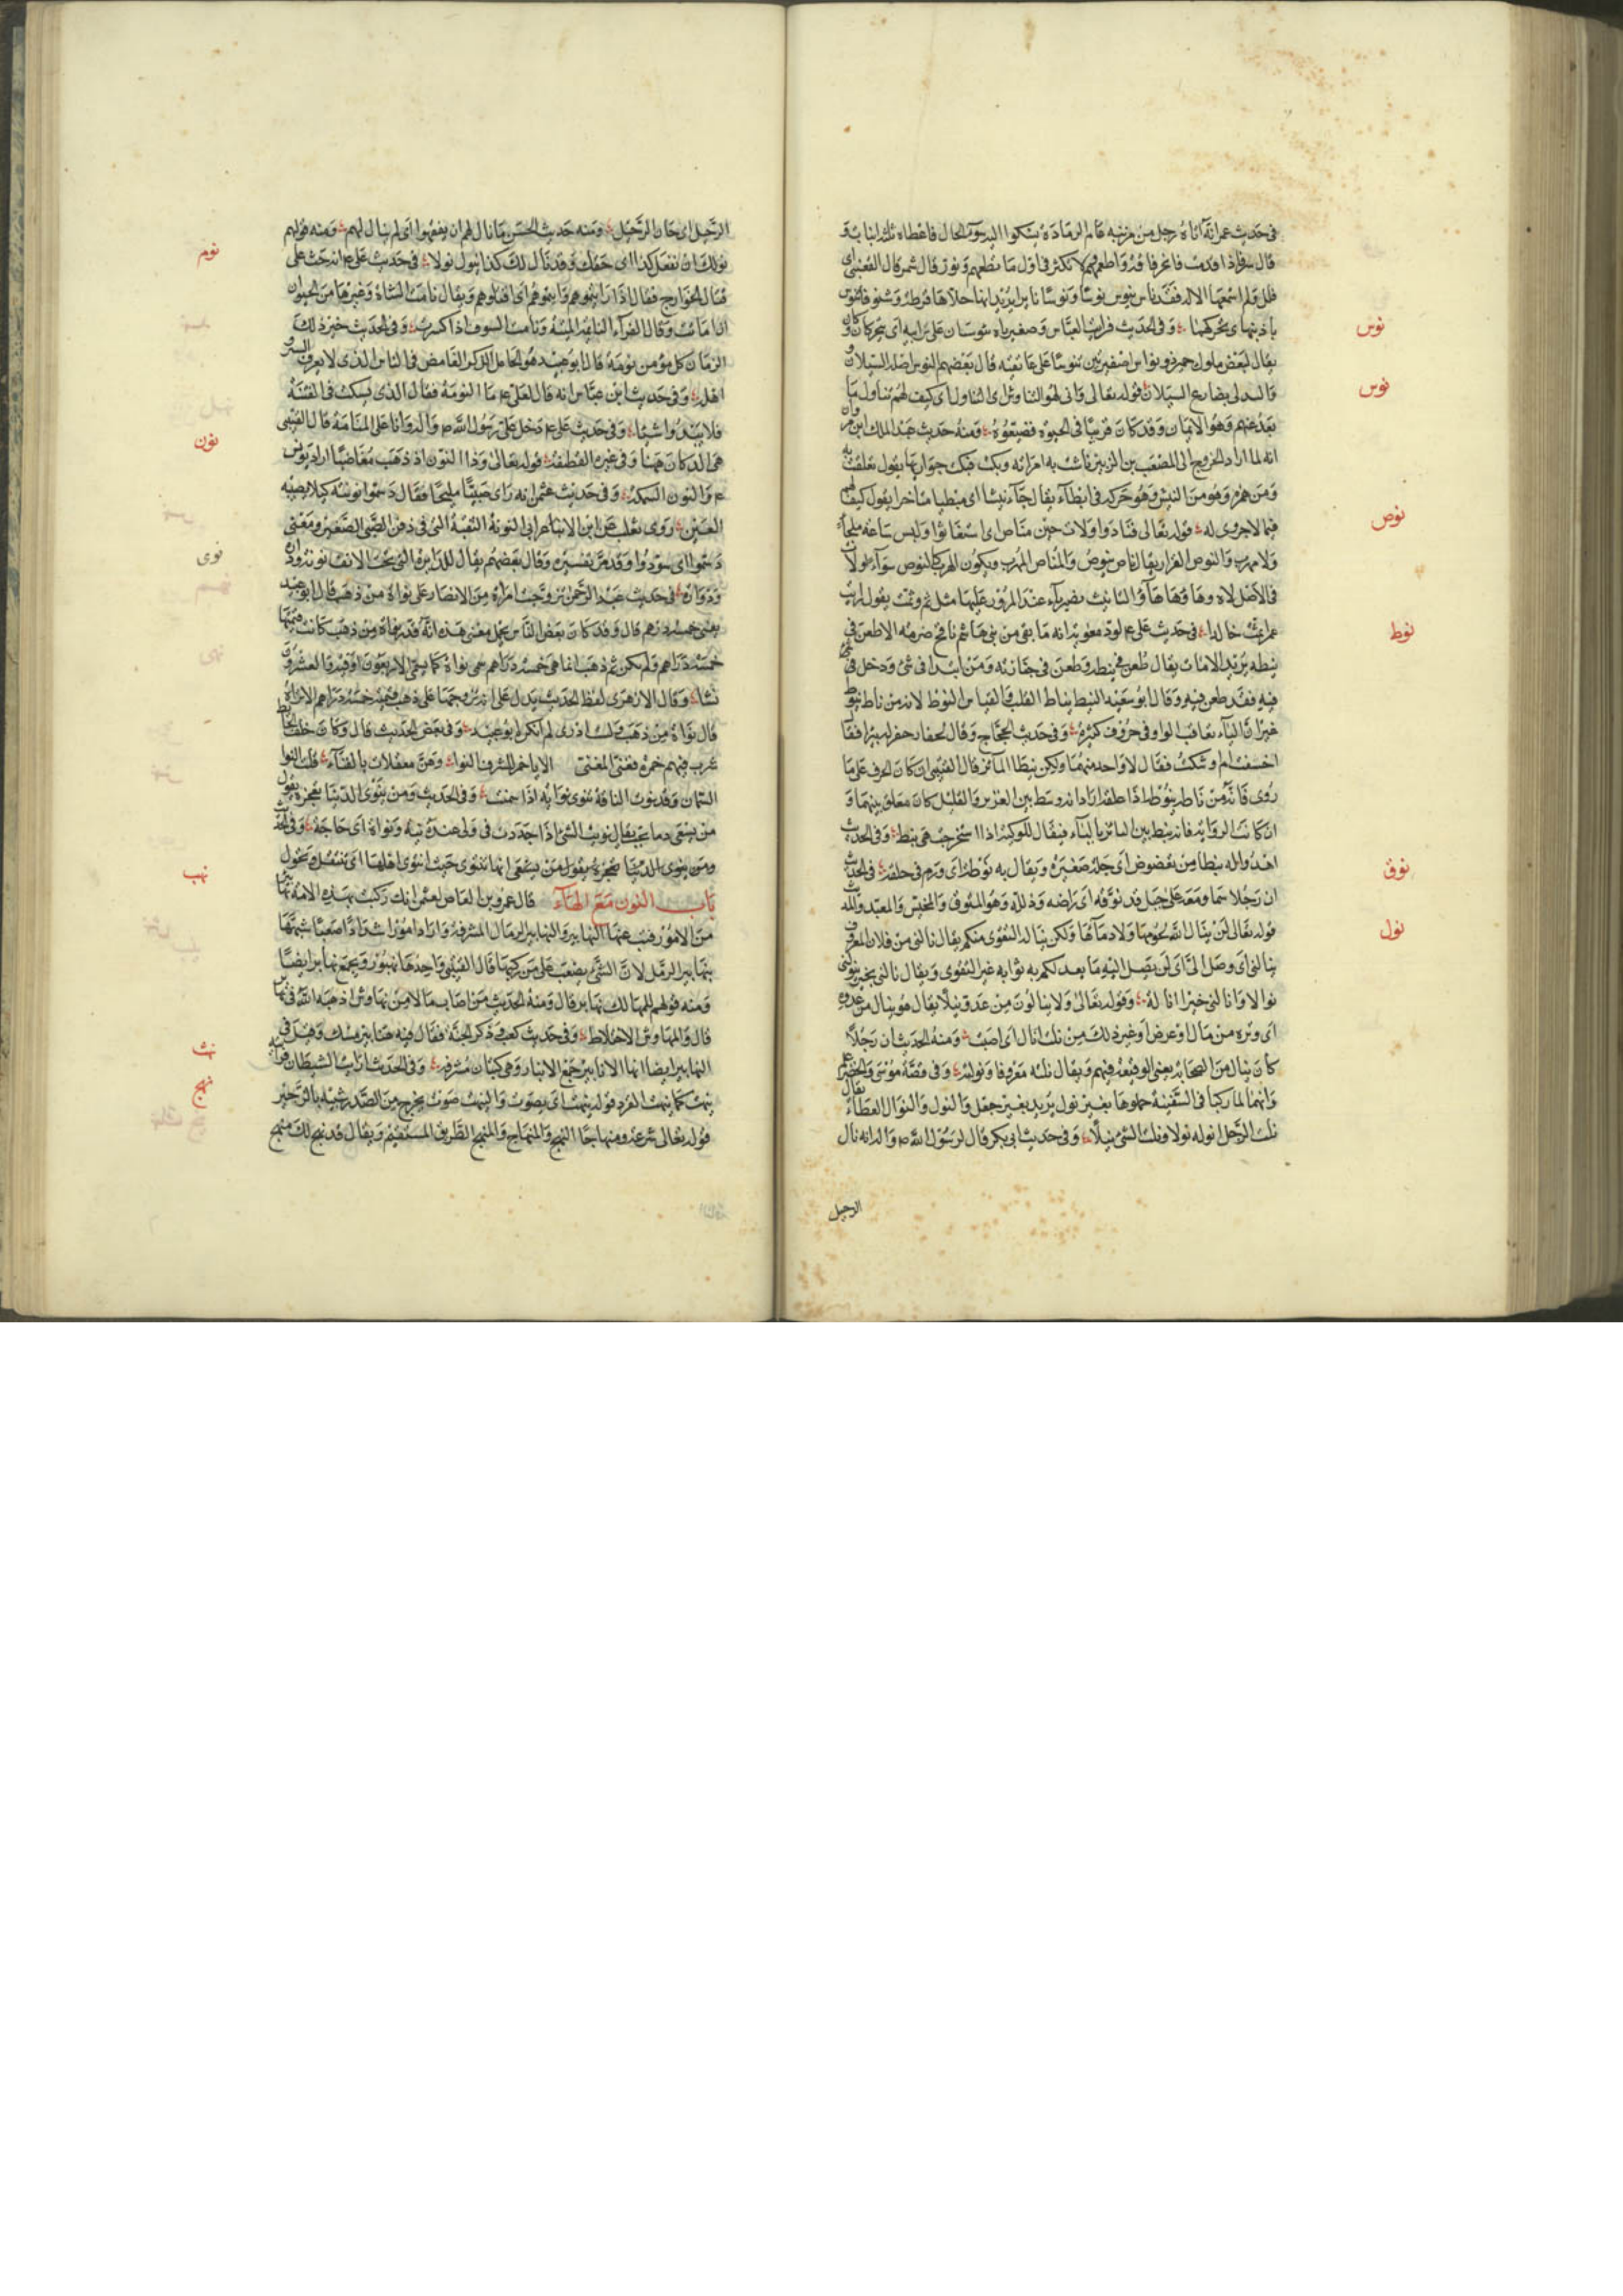 في حديث عمر انه اتاه رجل من مزينه عام الرمادة يشكوا اليه سوء الحال فاعطاه ثلثه انياب و
قال سر فاذا قدمت فانحر ناقة واطعمهم ولا تكثر في اول ما تطعمهم ونوز قال شمر قال القعنبي اي
قلل ولم اسمعها الا له
نوس
باذنيها اي يحركهما وفي الحديث فرايت العباس وضفيرتاه تنوسان على ترائبه اي تتحركان
يقال لبعض ملوك حمير ذو نواس لضفيرتين تنوسا على عاتقه قال بعضهم النوس اصله السيلان
نوش
قوله تعالى وانى لهم التناوش اي التناول اي كيف لهم تناول ما
بعد عنهم وهو الايمان وقد كان قريبا في الحيوة فضيعوه ومنه حديث عبد الملك ابن مروان
انه لما اراد الخروج الى المصعب بن الزبير ناشت به امراته وبكت فبكت جواريها يقول تعلقت به
ومن همز وهو من النيش وهو حركة في ابطاء يقال جاء نيشا اي مبطيا متاخرا يقول كيف لهم
نوص
فيما لا جدوى له قوله تعالى فنادوا ولات حين مناص اي استغاثوا وليس ساعة ملجا
ولا مهرب والنوص الفرار يقال ناص ينوص والمناص المهرب ويكون الهرب كالنوص سواء
في الاصل لاه وهاؤها هاء التانيث تصير تاء عند المرور عليها مثل ثم وثمت يقول
نوط
في حديث على ع لود معوية انه ما بقي من بني هاشم نافخ ضرمة الا طعن في
نيطه يريد الا مات يقال طعن في نيطه وطعن في جنازته ومن ابتدا في شئ ودخل
فيه فقد طعن فيه وقال ابو سعيد النيط نياط القلب والقياس النوط لانه من ناط ينوط
غير ان الياء تعاقب الواو في حروف كثيرة وفي حديث الحجاج وقال لحفار حفر له بيرا فقال
اخسفت ام اوشكت فقال لا واحد منهما ولكن نيطا الماتر قال القتيبي ان كان الحرف على ما
روي فانه من ناطه ينوطه اذا علقه اراد انه وسط بين الغزير والقليل كان معلق بينهما و
ان كانت الرواية فانه ينط بين بالباء فيقال للركية اذا استخرجت هي نبط وفي الحديث
اهدوا له نيطا من تعضوض اي جلة صغيرة ويقال به نوطة اي ورم في حلقه في الحديث
نوق
ان رجلا سار معه على جمل قد نوقه اي راضه وذلله وهو المنوق والمخيس والمعبد
نول
قوله تعالى لن ينال الله لحومها ولا دماؤها ولكن يناله التقوى منكم يقال نالني من فلان معروف
ينالني اي وصل الي اي لن يصل اليه ما يعد لكم به ثوابه غير التقوى ويقال نالني بخير ينولني
نوالا وانالني خيرا انالة وقوله تعالى ولا ينالون من عدو نيلا يقال هو ينال من عدوه
اي وتره من مال او عرض او غير ذلك من نلت انال اي اصبت ومنه الحديث ان رجلا
كان ينال من الصحابة يعني الوقيعة فيهم ويقال نلته معروفا ونولته وفي قصة موسى والخضر
وانهما لما ركبا في السفينة حملوهما بغير نول يريد بغير جعل والنول والنوال العطاء يقال
نلت الرجل انوله نولا ونلت الشئ نيلا وفي حديث ابي بكر قال لرسول الله ص واله انه نال
الرحيل
الرحيل اي حان الرحيل ومنه حديث الحسن ما نال لهم ان يفقهوا اي لم ينال لهم ومنه قولهم
نوم
نولك ان تفعل كذا اي حقك وقد نال لك كذا ينول نولا في حديث على ع انه حث على
قتال الخوارج فقال اذا رايتموهم فانيموهم اي اقتلوهم ويقال نامت الشاة وغيرها من الحيوان
اذا ماتت وقال الفراء النائمة الميتة ونامت السوق اذا كسدت وفي الحديث خير ذلك
الزمان كل مؤمن نومة قال ابو عبيد هو الخامل الذكر الغامض في الناس الذي لا يعرف الشر و
اهله وفي حديث ابن عباس انه قال لعلي ع ما النومة فقال الذي يسكت في الفتنة
فلا يبدوا شيئا وفي حديث على ع دخل علي رسول الله ص واله وانا على المنامة قال القتيبي
نون
هي الدكان ههنا وفي غيره القطيفة قوله تعالى وذا النون اذ ذهب مغاضبا اراد يونس
ع والنون السمكة وفي حديث عثمن انه راى صبيا مليحا فقال دسموا نونته كيلا يصيبه
العين روى ثعلب عن ابن الاعرابي النونة النقبة التي في ذقن الصبي الصغير ومعنى
دسموا اي سودوا وقد مر تفسيره وقال بعضهم يقال للدايرة التي تحت الانف نونة
نوى
في حديث عبد الرحمن تزوجت امراة من الانصار على نواة من ذهب قال ابو عبيد
يعني خمسة درهم قال وقد كان بعض الناس يحمل معنى هذه انه قدر نواة من ذهب كانت قيمتها
خمسة دراهم ولم يكن ثم ذهب انما هي خمسة دراهم سمى نواة كما يسمى الاربعون اوقية والعشرون
نشا وقال الازهري لفظ الحديث يدل على انه تزوجها على ذهب قيمته خمسة دراهم الا تراه
قال نواة من ذهب ولست ادري لم انكره ابو عبيد وفي بعض الحديث قال وكان خلف الحايط
شرب فيهم حمزة فغنى المغنى الا يا حمز للشرف النواء وهن معقلات بالفناء قلت النوا
السمان وقد نوت الناقة تنوى نواية اذا سمنت وفي الحديث ومن ينوى الدنيا تعجزه يقول
من يسعى لها يخب يقال نويت الشئ اذا جددت في ولي عنده نية ونواة اي حاجة وفي الحديث
ومن ينوى الدنيا تعجزه يقول من يسعى انها تنتوى حيث انتوى اهلها اي تنتقل وتحول
نهب
باب النون مع الهاء قال عمرو بن العاص لعثمن انك ركبت بهذه الامة نهابير
من الامور فتب عنها النهابير والنهابير الرمال المشرفة واراد امورا شدادا صعبا شبهها
بنهابير الرمل لان المشي يصعب على من ركبها قال القتيبي واحدها نهبور ويجمع نهابر ايضا
ومنه قولهم للمهالك نهابر قال ومنه الحديث من اصاب مالا من نهاوش اذهبه الله في نهابر
قال والمهاوش الاختلاط وفي حديث كعب وذكر الجنة فقال فيه هنابير مسك وهي في
نهت
النهابير ايضا انها الانابير جمع الانبار وهي كثبان مشرفة وفي الحديث ارايت الشيطان
ينهت كما ينهت القرد قوله ينهت اي يصوت والنهيت صوت يخرج من الصدر شبيه بالزحير
نهج
قوله تعالى شرعة ومنهاجا النهج والمنهاج والمنهج الطريق المستقيم ويقال قد نهج لك منهج